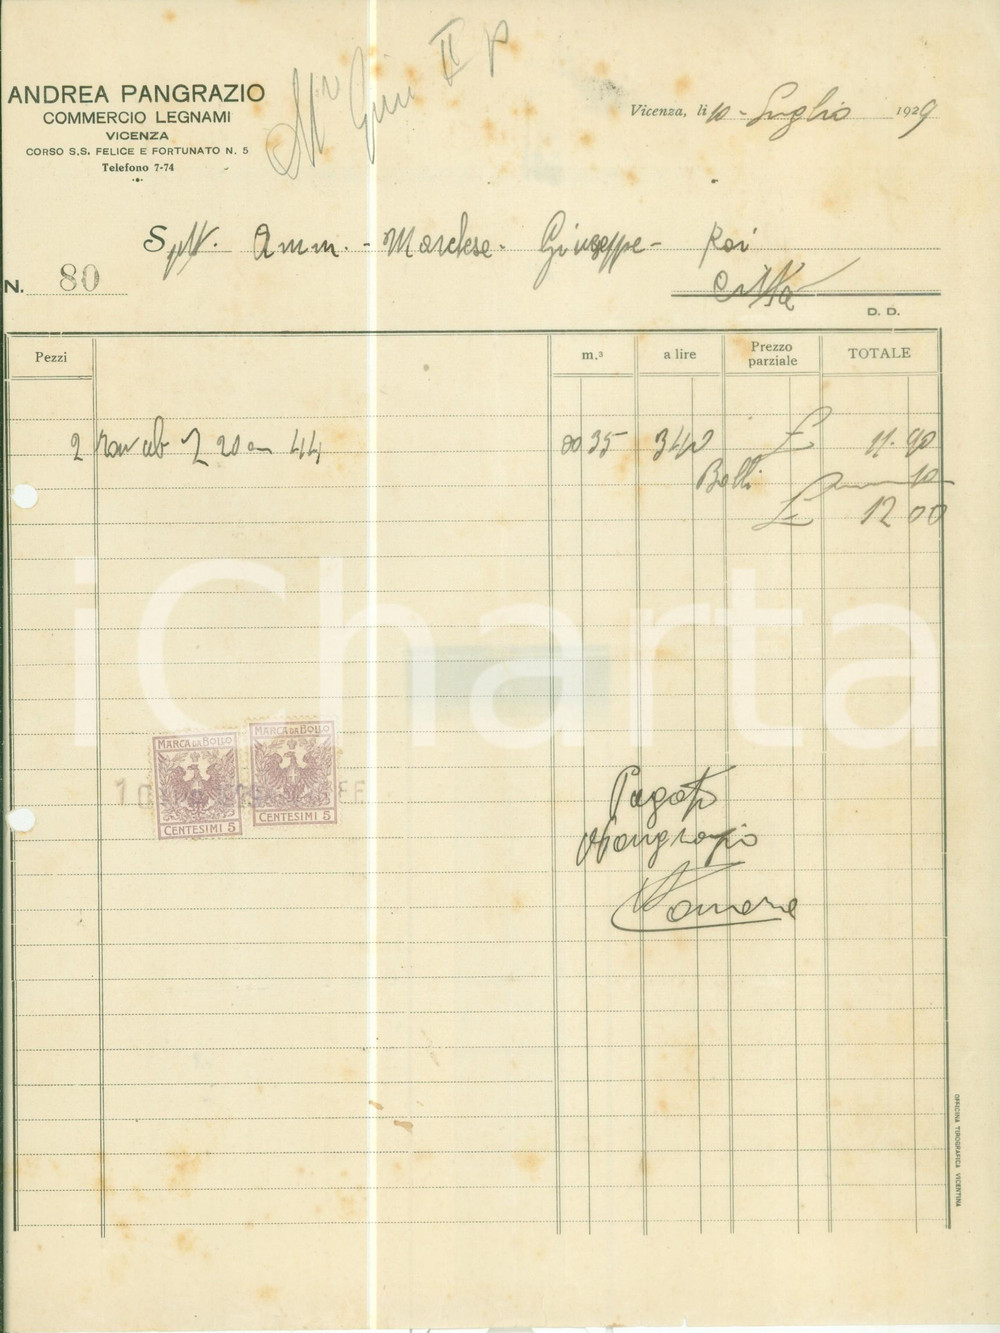 ANDREA PANGRAZIO
COMMERCIO LEGNAMI
VICENZA
CORSO S.S. FELICE E FORTUNATO N. 5
Telefono 7-74
II P
Vicenza, li 10 - Luglio 1929
Spett. Amm. - Marchese - Giuseppe - Roi
Città
N. 80
D. D.
Pezzi m.³ a lire Prezzo parziale TOTALE
2 20 44 00 35 340 £ 11.90
Bolli 10
£ 12 00
iCharta
MARCA DA BOLLO
CENTESIMI 5
MARCA DA BOLLO
CENTESIMI 5
Pagato
Pangrazio
OFFICINA TIPOGRAFICA VICENTINA